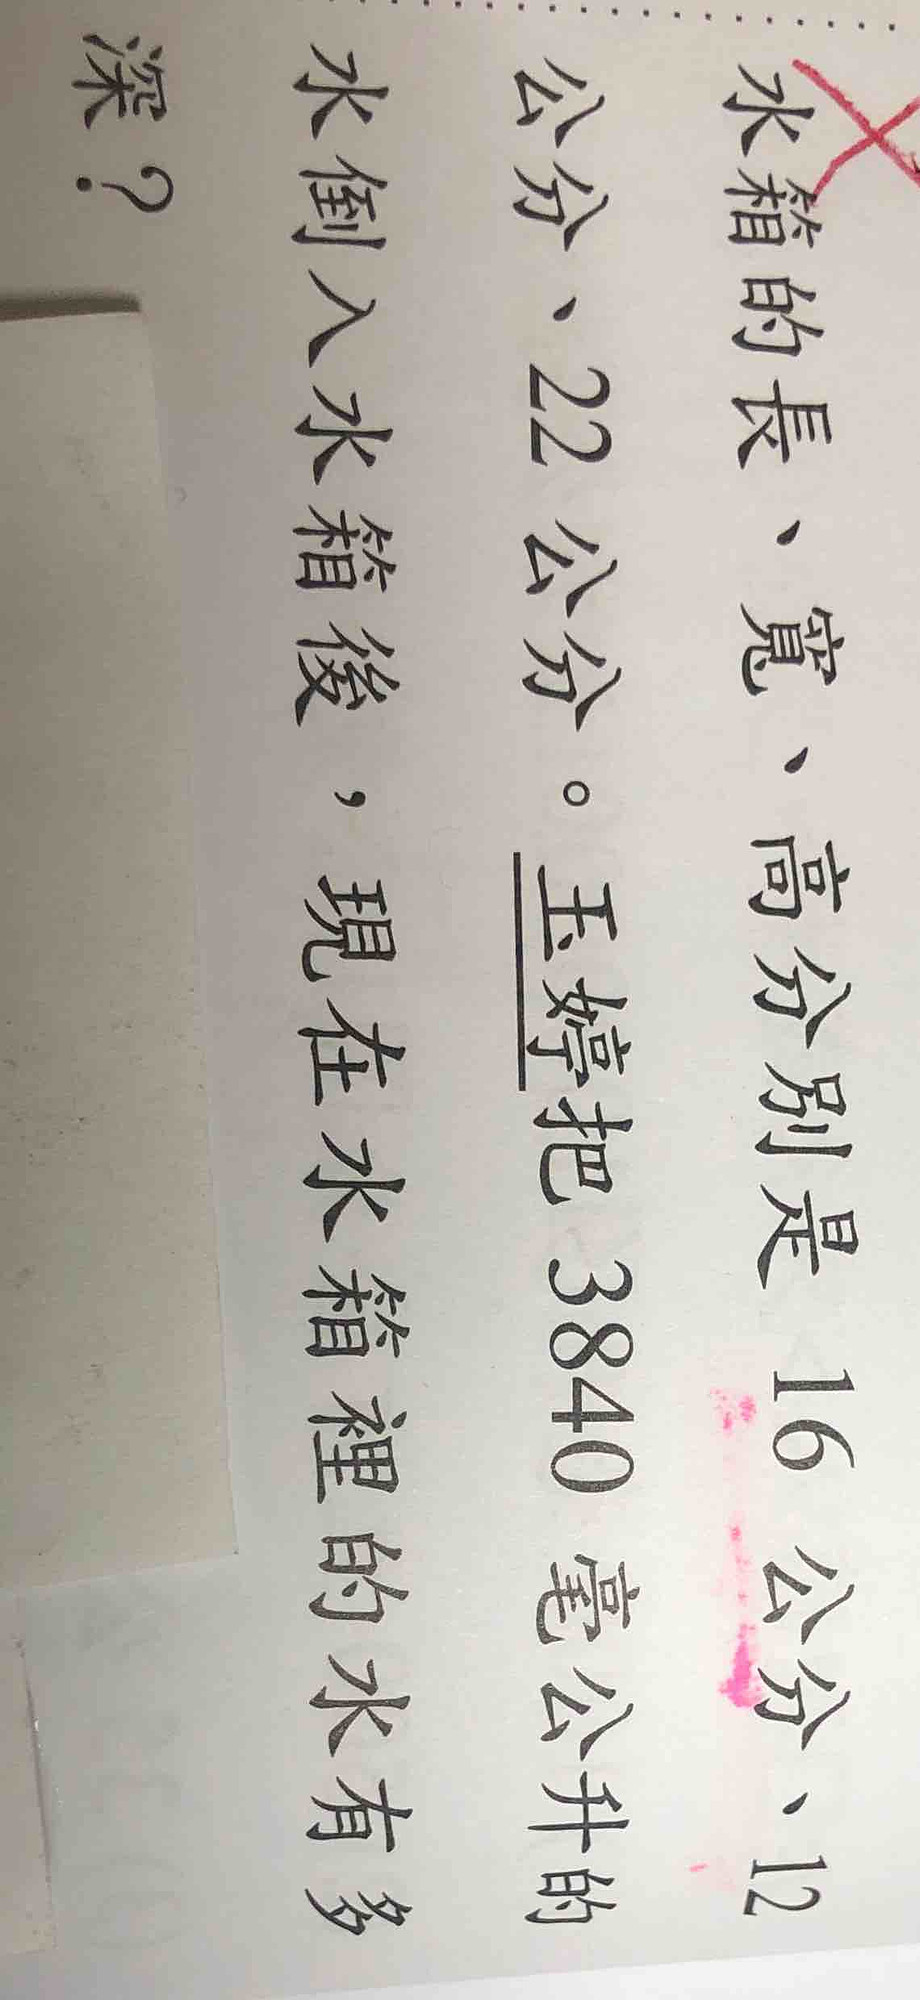 水箱的長、寬、高分別是 16 公分、12
公分、22 公分。玉婷把 3840 毫公升的
水倒入水箱後，現在水箱裡的水有多
深？